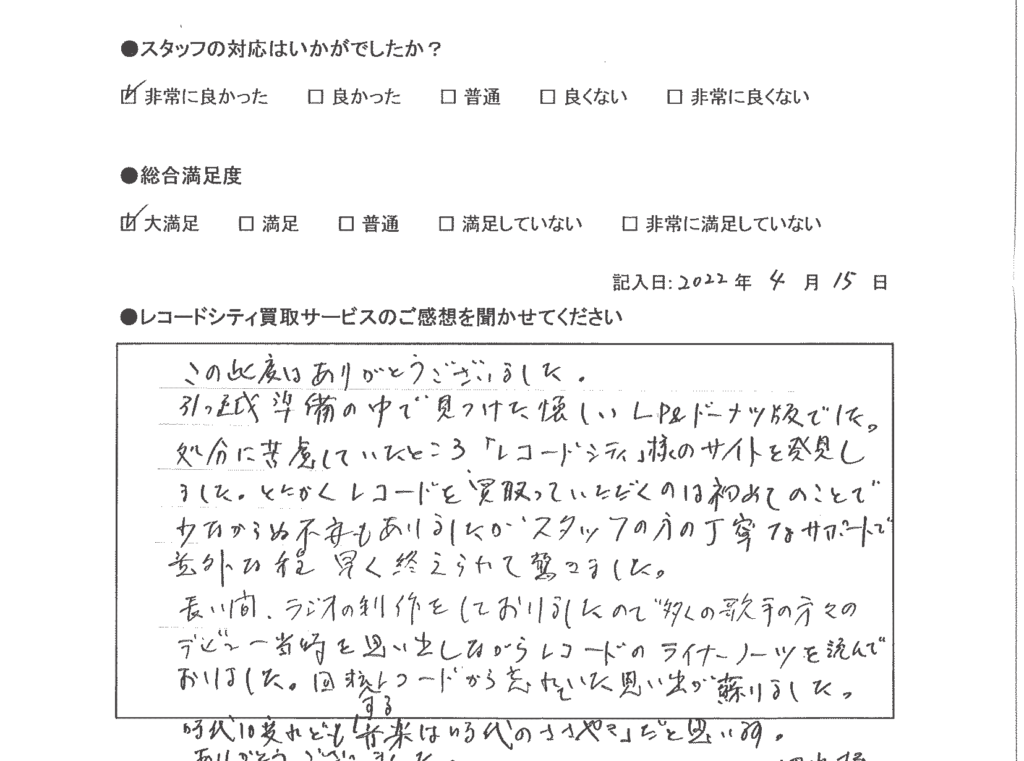 ●スタッフの対応はいかがでしたか？
☑ 非常に良かった □ 良かった □ 普通 □ 良くない □ 非常に良くない
●総合満足度
☑ 大満足 □ 満足 □ 普通 □ 満足していない □ 非常に満足していない
記入日:2022 年 4 月 15 日
●レコードシティ買取サービスのご感想を聞かせてください
この此度はありがとうございました。
引っ越し準備の中で見つけた懐しいLP&ドーナツ版でした。
処分に苦慮していたところ「レコードシティ」様のサイトを発見し
ました。とにかくレコードを買取っていただくのは初めてのことで
少なからぬ不安もありましたがスタッフの方の丁寧なサポートで
意外な程早く終えられて驚きました。
長い間、ラジオの制作をしておりましたので多くの歌手の方々の
デビュー当時を思い出しながらレコードのライナーノーツを読んで
おりました。回転するレコードから忘れていた思い出が蘇りました。
時代は変れども「音楽は時代のささやき」だと思います。
ありがとうございました。